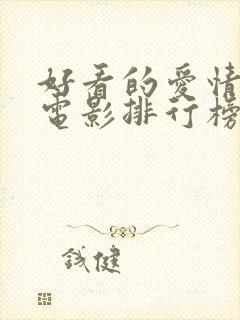 好看的爱情
电影排行榜
诚健